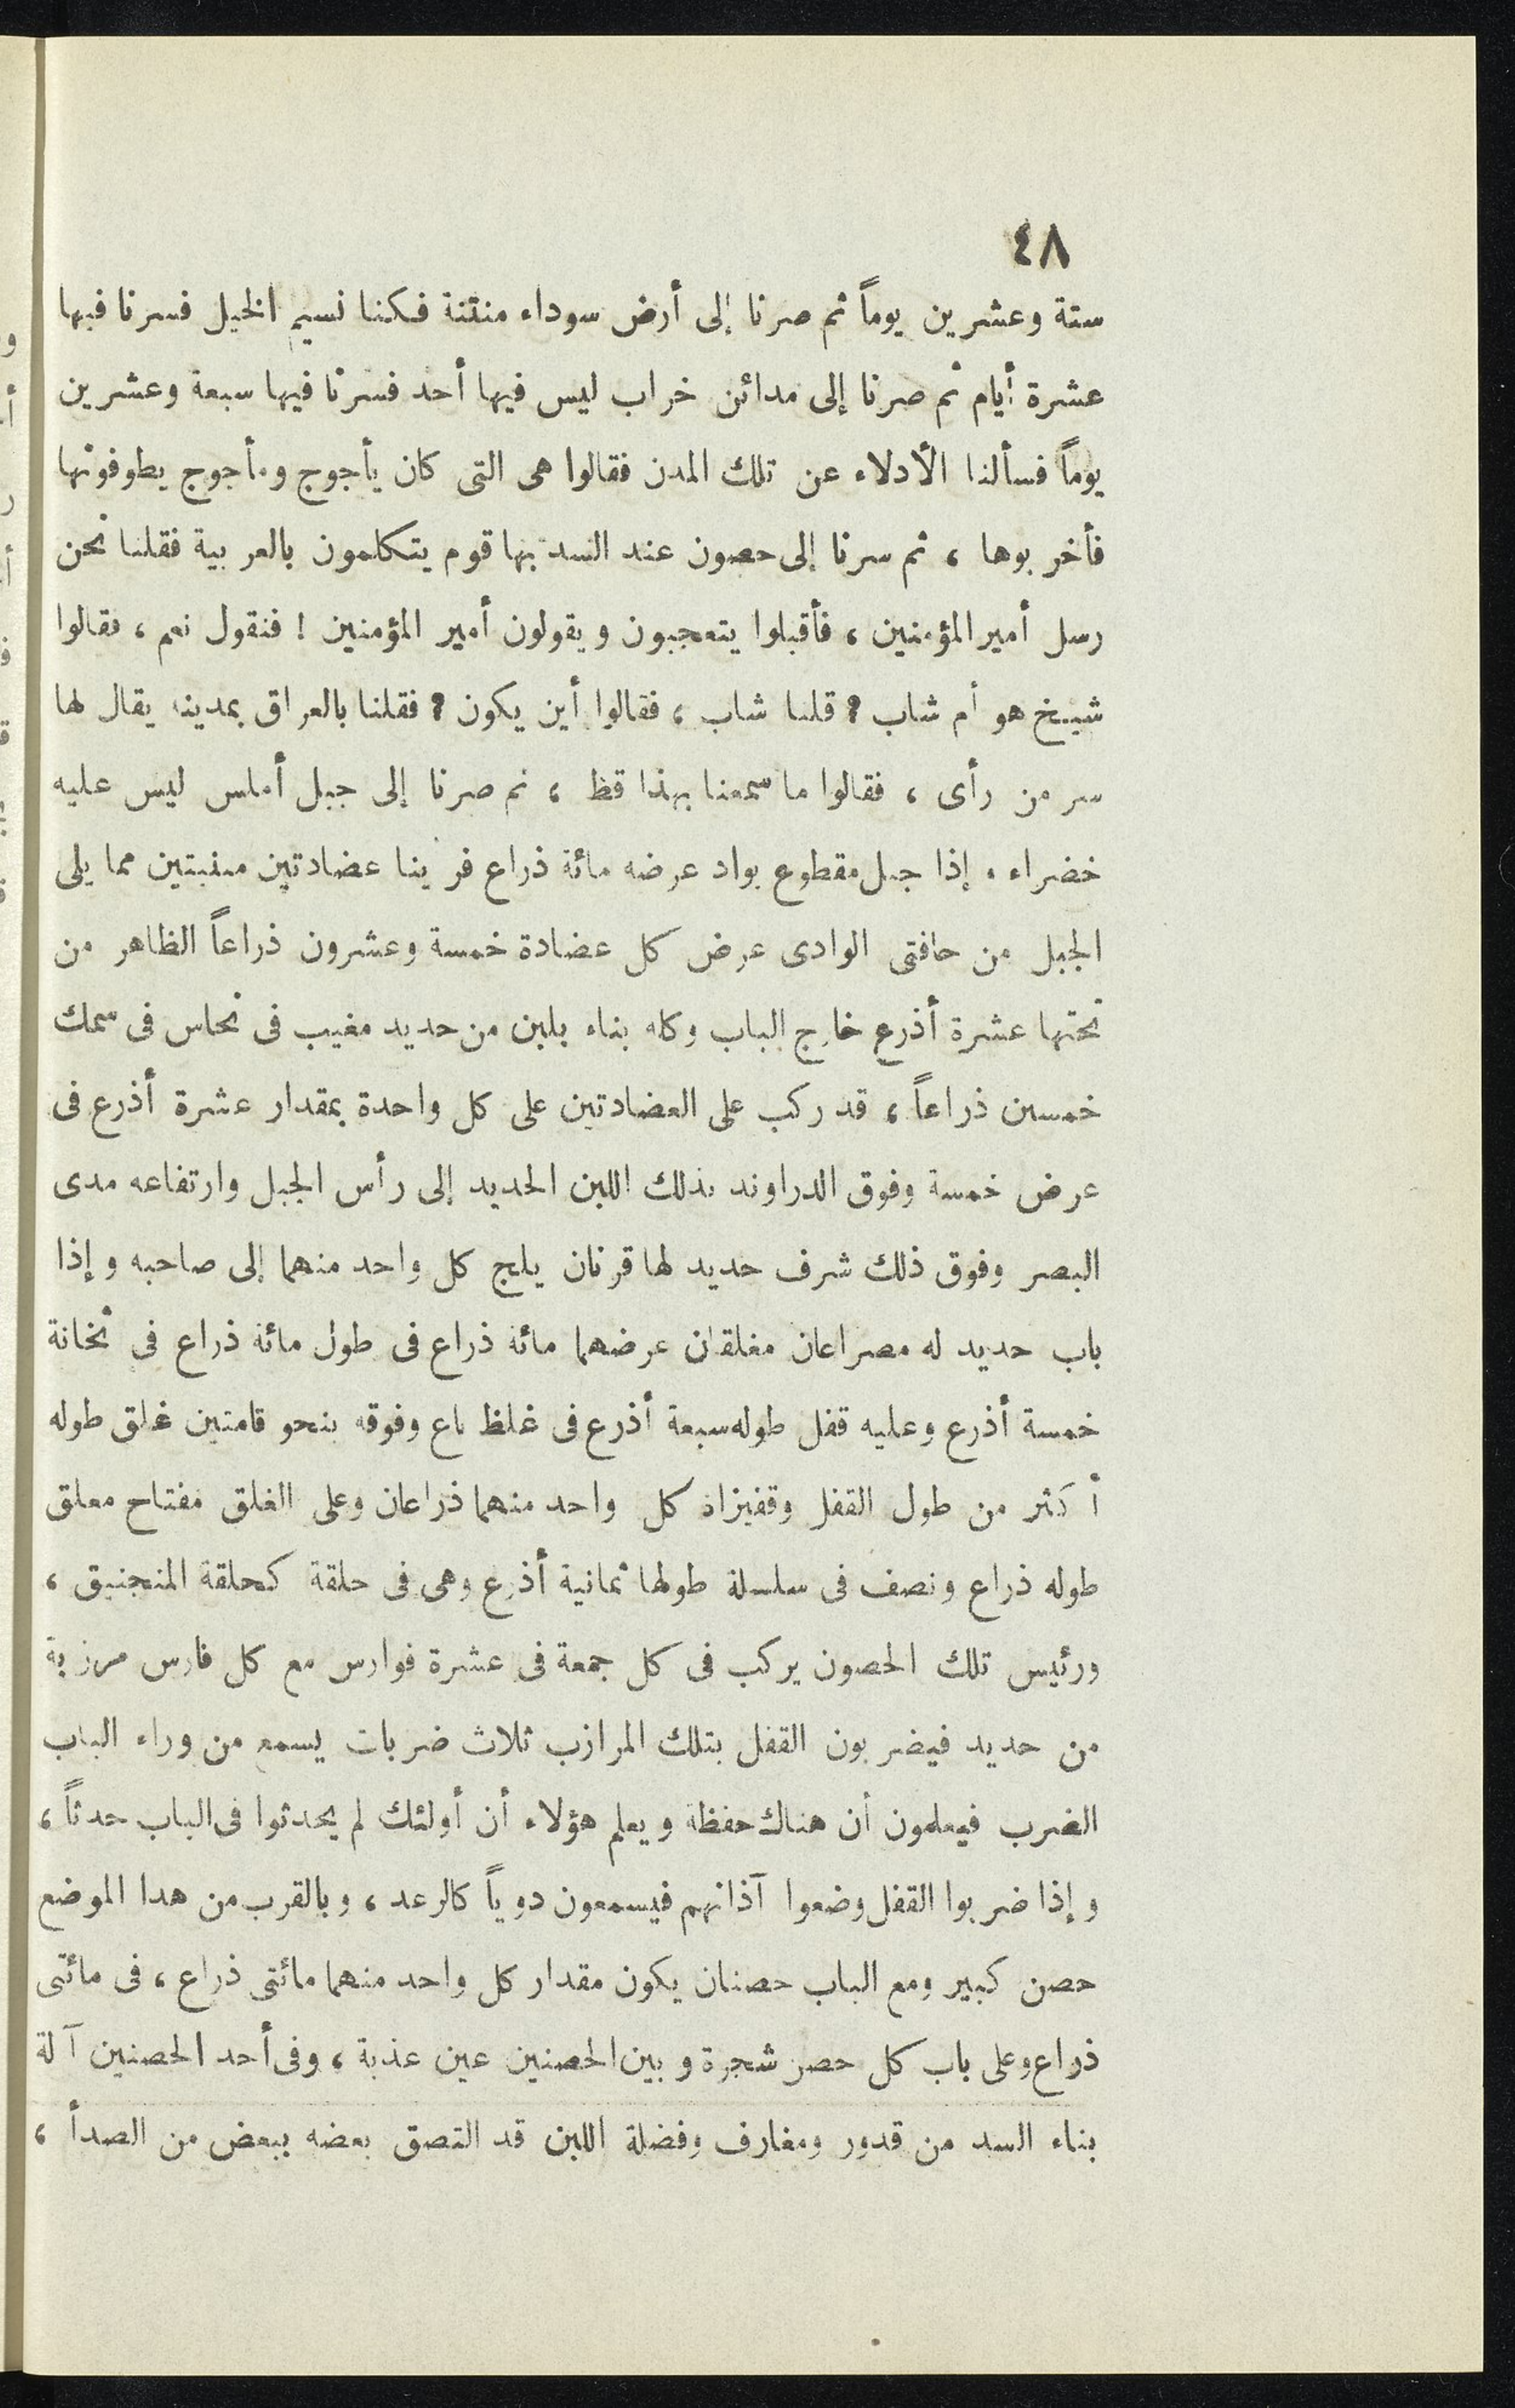 ٤٨
ستة وعشرين يوماً ثم صرنا إلى أرض سوداء منتنة فكنا نسيم الخيل فسرنا فيها
عشرة أيام ثم صرنا إلى مدائن خراب ليس فيها أحد فسرنا فيها سبعة وعشرين
يوماً فسألنا الأدلاء عن تلك المدن فقالوا هى التى كان يأجوج ومأجوج يطوفونها
فأخربوها ، ثم سرنا إلى حصون عند السد بها قوم يتكلمون بالعربية فقلنا نحن
رسل أمير المؤمنين ، فأقبلوا يتعجبون ويقولون أمير المؤمنين ! فنقول نعم ، فقالوا
شيخ هو أم شاب ? قلنا شاب ، فقالوا أين يكون ? فقلنا بالعراق بمدينة يقال لها
سر من رأى ، فقالوا ما سمعنا بهذا قط ، ثم صرنا إلى جبل أملس ليس عليه
خضراء . إذا جبل مقطوع بواد عرضه مائة ذراع فرينا عضادتين مبنيتين مما يلى
الجبل من حافتى الوادى عرض كل عضادة خمسة وعشرون ذراعاً الظاهر من
تحتها عشرة أذرع خارج الباب وكله بناء بلبن من حديد مغيب فى نحاس فى سمك
خمسين ذراعاً ، قد ركب على العضادتين على كل واحدة بمقدار عشرة أذرع فى
عرض خمسة وفوق الدراوند بذلك اللبن الحديد إلى رأس الجبل وارتفاعه مدى
البصر وفوق ذلك شرف حديد لها قرنان يلج كل واحد منهما إلى صاحبه وإذا
باب حديد له مصراعان مغلقان عرضهما مائة ذراع فى طول مائة ذراع فى ثخانة
خمسة أذرع وعليه قفل طوله سبعة أذرع فى غلظ باع وفوقه بنحو قامتين غلق طوله
أكثر من طول القفل وقفيزاه كل واحد منهما ذراعان وعلى الغلق مفتاح معلق
طوله ذراع ونصف فى سلسلة طولها ثمانية أذرع وهى فى حلقة كحلقة المنجنيق ،
ورئيس تلك الحصون يركب فى كل جمعة فى عشرة فوارس مع كل فارس مرزبة
من حديد فيضربون القفل بتلك المرازب ثلاث ضربات يسمع من وراء الباب
الضرب فيعلمون أن هناك حفظة ويعلم هؤلاء أن أولئك لم يحدثوا فى الباب حدثاً ،
وإذا ضربوا القفل وضعوا آذانهم فيسمعون دوياً كالرعد ، وبالقرب من هدا الموضع
حصن كبير ومع الباب حصنان يكون مقدار كل واحد منهما مائتى ذراع ، فى مائتى
ذراع وعلى باب كل حصن شجرة وبين الحصنين عين عذبة ، وفى أحد الحصنين آلة
بناء السد من قدور ومغارف وفضلة اللبن قد التصق بعضه ببعض من الصدأ ،